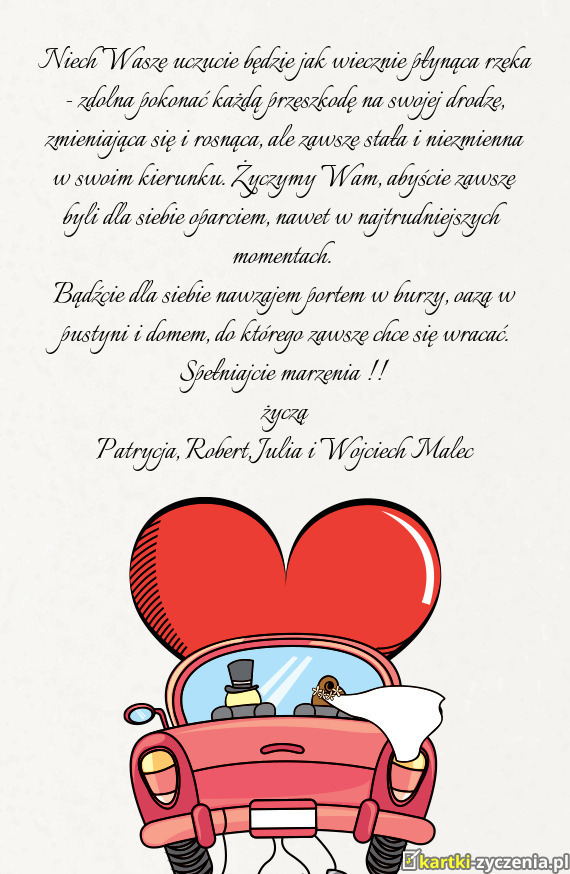 Niech Wasze uczucie będzie jak wiecznie płynąca rzeka
- zdolna pokonać każdą przeszkodę na swojej drodze,
zmieniająca się i rosnąca, ale zawsze stała i niezmienna
w swoim kierunku. Życzymy Wam, abyście zawsze
byli dla siebie oparciem, nawet w najtrudniejszych
momentach.
Bądźcie dla siebie nawzajem portem w burzy, oazą w
pustyni i domem, do którego zawsze chce się wracać.
Spełniajcie marzenia !!
życzą
Patrycja, Robert, Julia i Wojciech Malec
kartki-zyczenia.pl